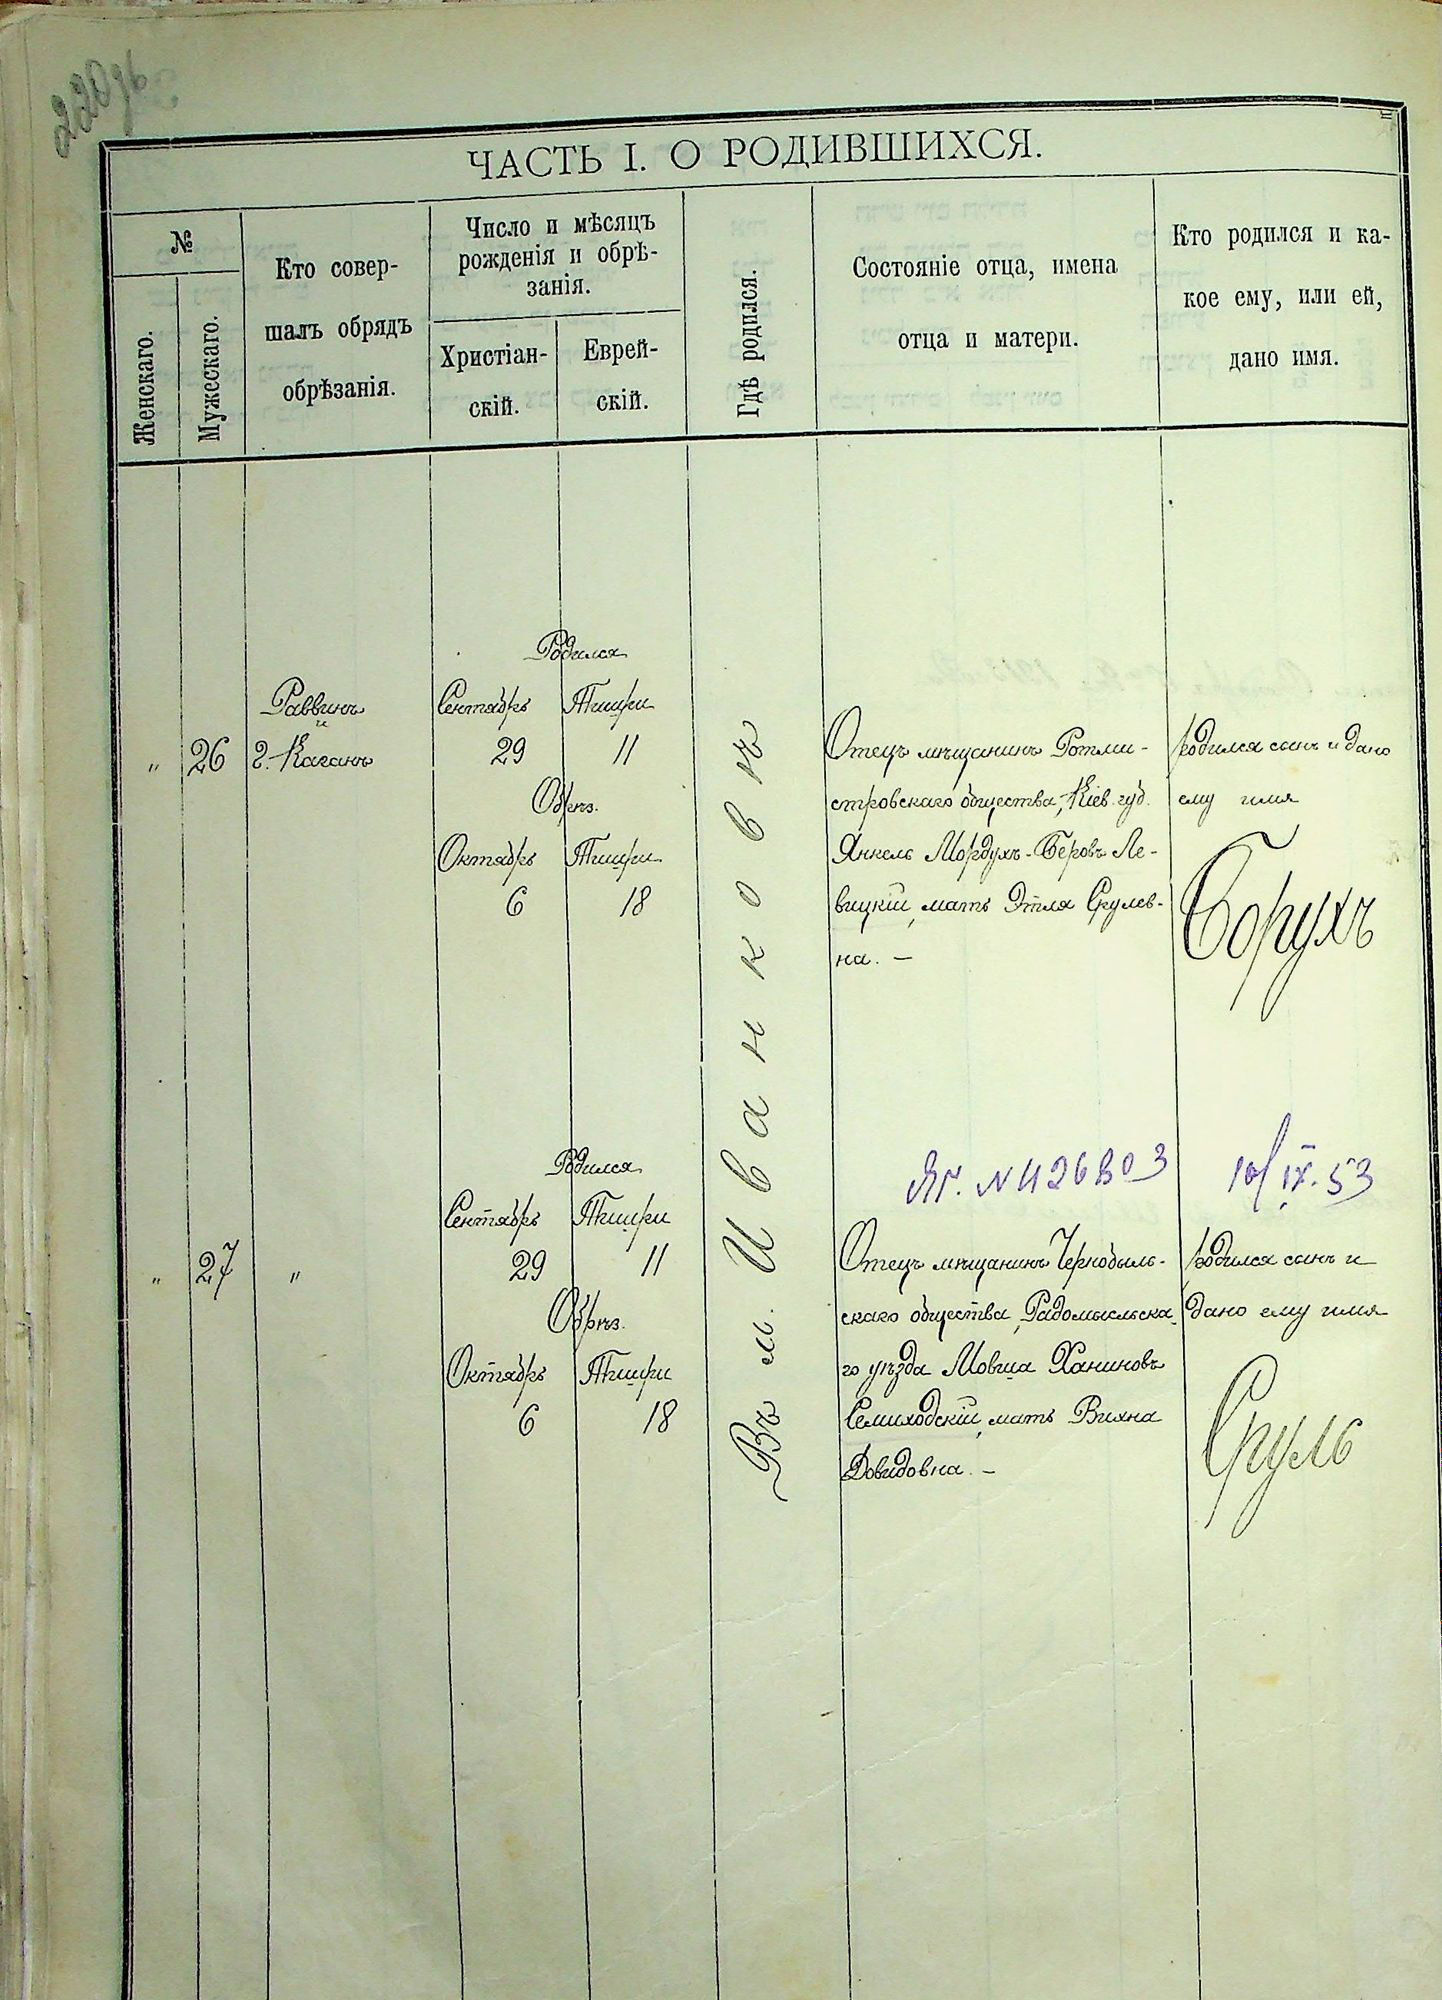 220
ЧАСТЬ I. О РОДИВШИХСЯ.
№
Женскаго.
Мужескаго.
Кто совер-
шалъ обрядъ
обрѣзанія.
Число и мѣсяцъ
рожденія и обрѣ-
занія.
Христіан-
скій.
Еврей-
скій.
Гдѣ родился.
Состояніе отца, имена
отца и матери.
Кто родился и ка-
кое ему, или ей,
дано имя.
Родился
Раввинъ Сентябрь Тишри
„ 26 Г. Каганъ 29 11
Обрѣз.
Октябрь Тишри
6 18
Въ м. Иванковѣ
Отецъ мѣщанинъ Ротми-
стровскаго общества, Кіев. губ.
Янкель Мордухъ-Беровъ Ле-
вицкій, мать Этля Срулев-
на. —
родился сынъ и дано
ему имя
Борухъ
Родился
Сентябрь Тишри
„ 27 „ 29 11
Обрѣз.
Октябрь Тишри
6 18
ЯГ. № 426803 10/IX.53
Отецъ мѣщанинъ Чернобыль-
скаго общества, Радомысльска-
го уѣзда Мовша Ханиновъ
Семиходскій, мать Вихна
Довидовна. —
родился сынъ и
дано ему имя
Сруль